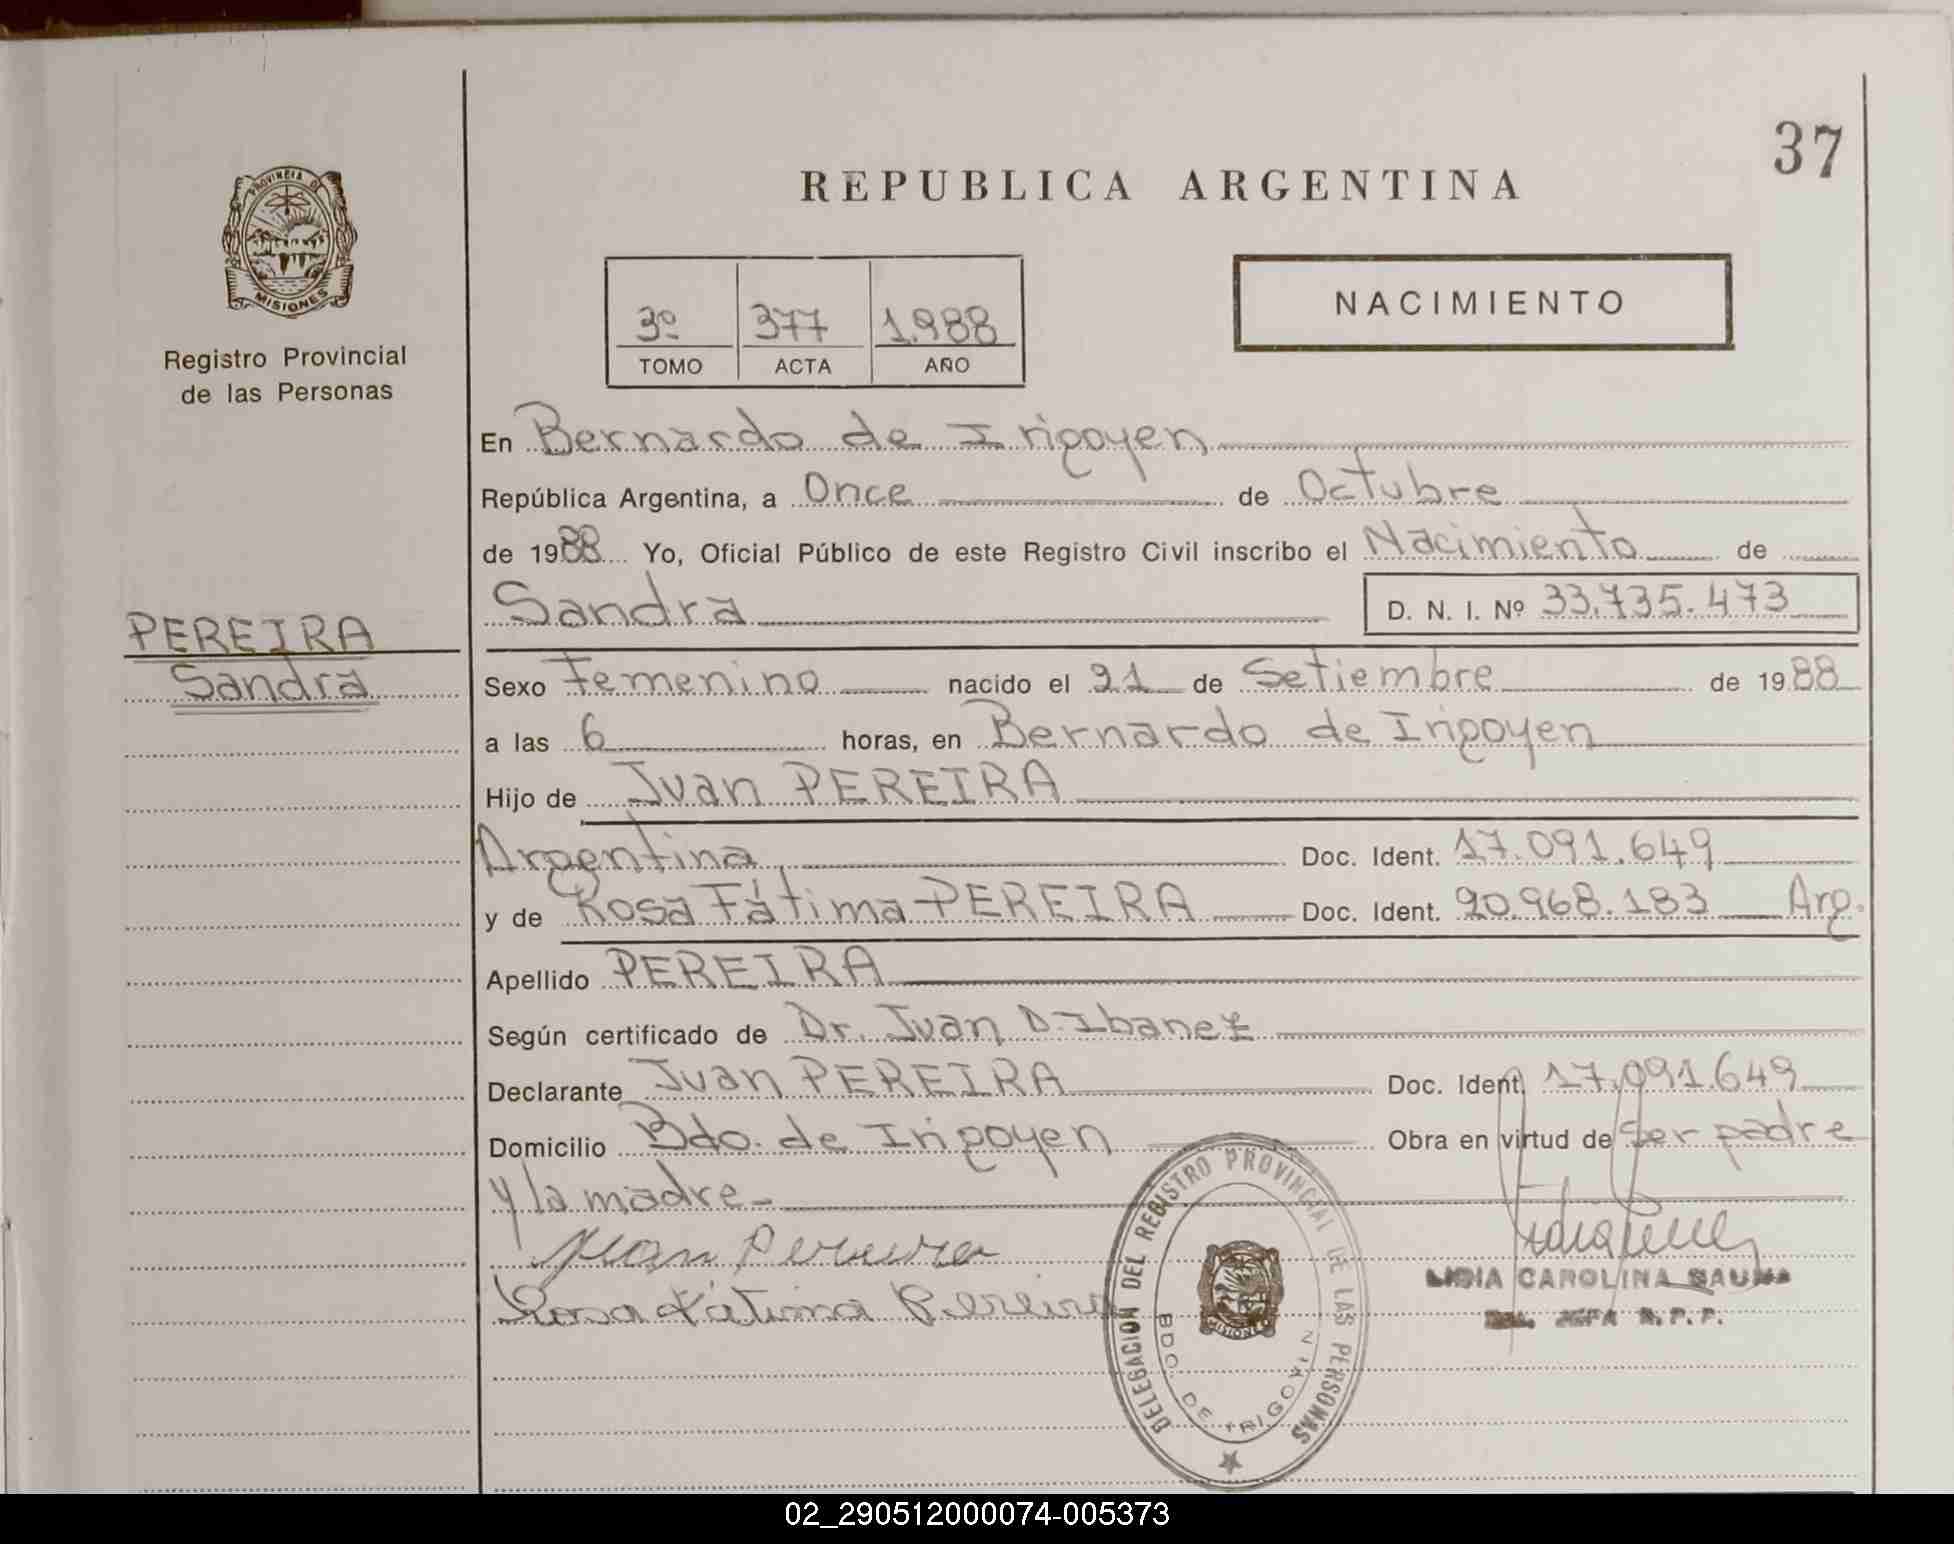 37
REPUBLICA ARGENTINA
PROVINCIA DE
MISIONES
Registro Provincial
de las Personas
3º 377 1.988
TOMO ACTA AÑO
NACIMIENTO
En Bernardo de Irigoyen
República Argentina, a Once de Octubre
de 1988 Yo, Oficial Público de este Registro Civil inscribo el Nacimiento de
Sandra D. N. I. Nº 33.735.473
PEREIRA
Sandra
Sexo Femenino nacido el 21 de Setiembre de 1988
a las 6 horas, en Bernardo de Irigoyen
Hijo de Juan PEREIRA
Argentina Doc. Ident. 17.091.649
y de Rosa Fátima PEREIRA Doc. Ident. 20.968.183 Arg.
Apellido PEREIRA
Según certificado de Dr. Juan D. Ibanez
Declarante Juan PEREIRA Doc. Ident. 17.091.649
Domicilio Bdo. de Irigoyen Obra en virtud de ser padre
y la madre-
Juan Pereira
Rosa Fátima Pereira
LIDIA CAROLINA SAUNA
JEFA R.P.P.
DELEGACION DEL REGISTRO PROVINCIAL DE LAS PERSONAS
BDO. DE IRIGOYEN
MISIONES
02_290512000074-005373